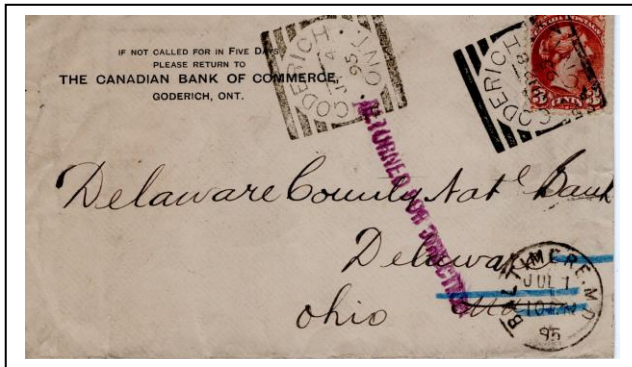 IF NOT CALLED FOR IN FIVE DAYS
PLEASE RETURN TO
THE CANADIAN BANK OF COMMERCE,
GODERICH, ONT.
GODERICH
ONT.
95
GODERICH
RETURNED FOR DIRECTION
Delaware County Natl Bank
Delaware
Ohio
BALTIMORE. MD
JUL 1
95